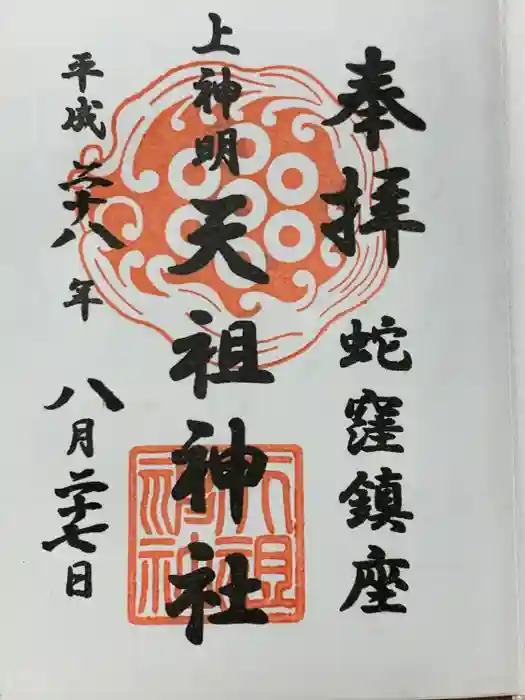 奉拝
蛇窪鎮座
上神明
天祖神社
平成二十八年
八月二十七日